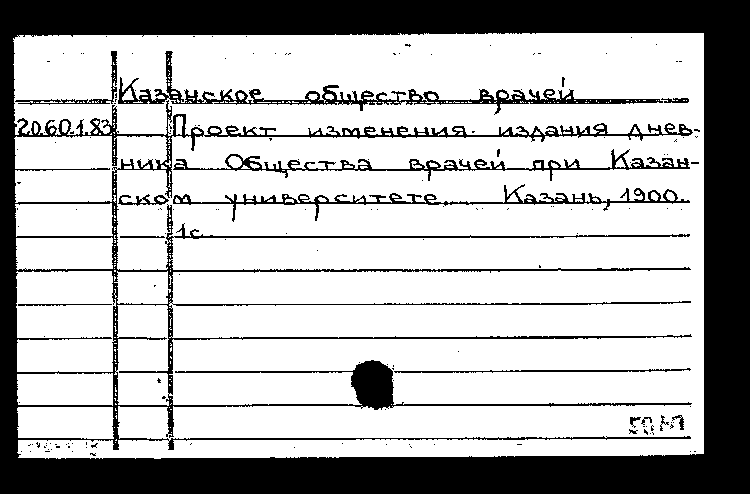 Казанское общество врачей
20.60.1.83 Проект изменения издания днев-
ника Общества врачей при Казан-
ском университете. Казань, 1900.
1с.